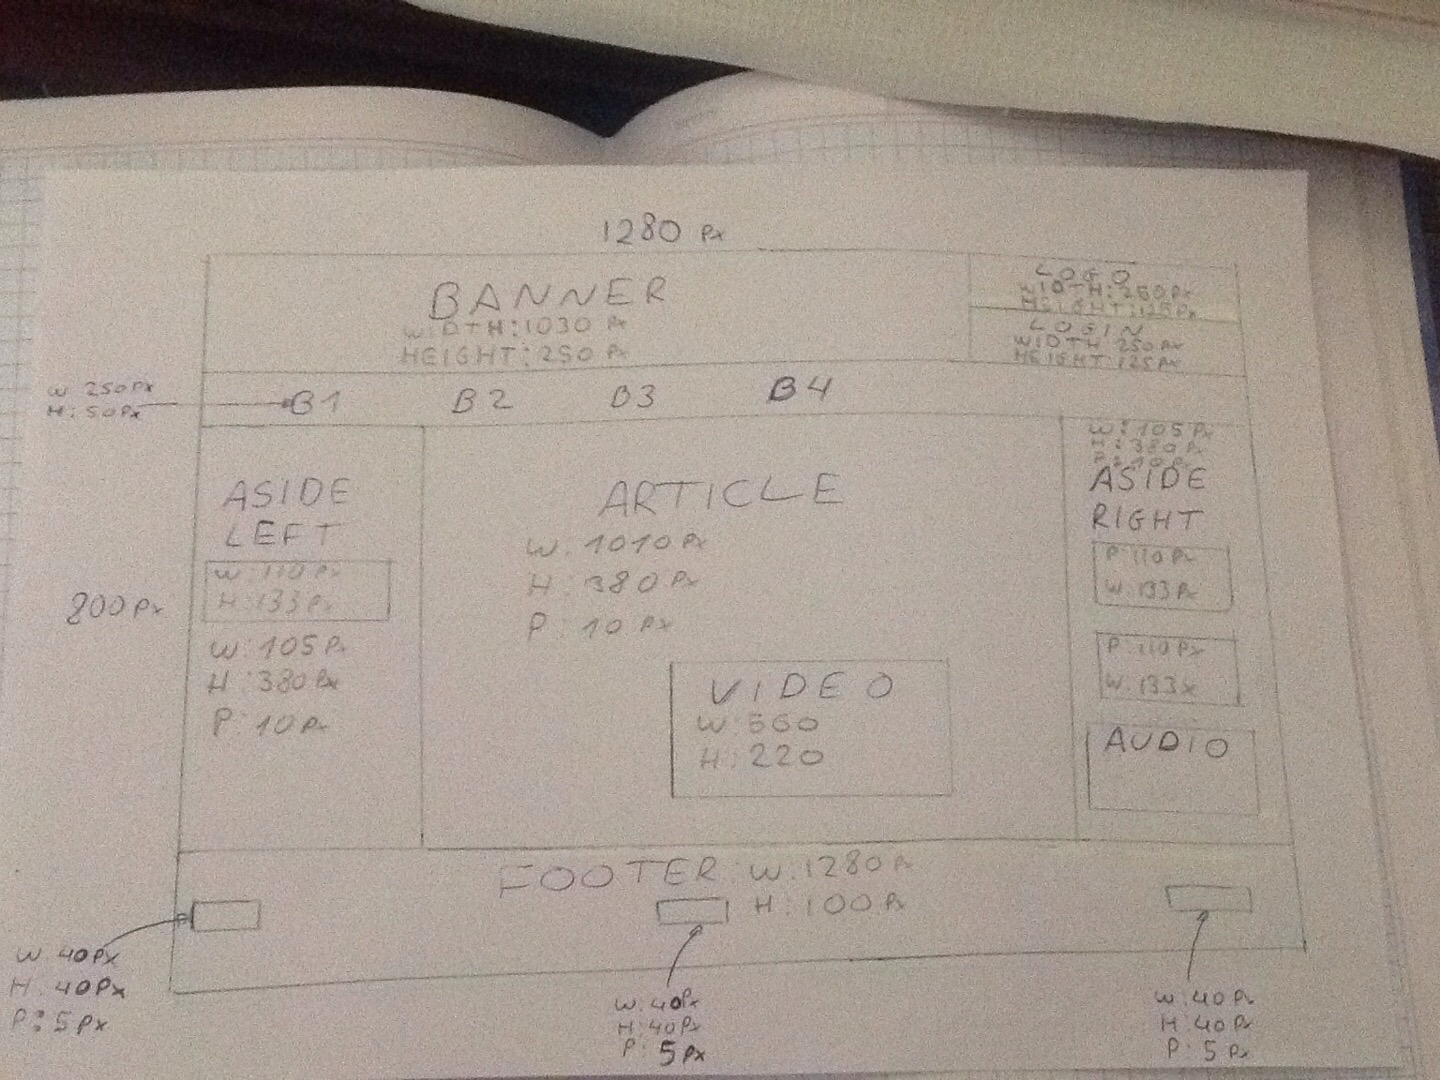 1280 Px
BANNER
WIDTH:1030 Px
HEIGHT:250 Px
LOGO
WIDTH:250Px
HEIGHT:125Px
LOGIN
WIDTH 250Px
HEIGHT 125Px
W 250Px
H:50Px
B1 B2 B3 B4
ASIDE
LEFT
W:110Px
H:133Px
W:105Px
H:380Px
P:10Px
800Px
ARTICLE
W:1010Px
H:380Px
P:10Px
VIDEO
W:560
H:220
W:105Px
H:380Px
P:10Px
ASIDE
RIGHT
P:110Px
W:133Px
P:110Px
W:133x
AUDIO
FOOTER W:1280Px
H:100Px
W 40Px
H 40Px
P:5Px
W:40Px
H:40Px
P:5Px
W:40Px
H:40Px
P:5Px